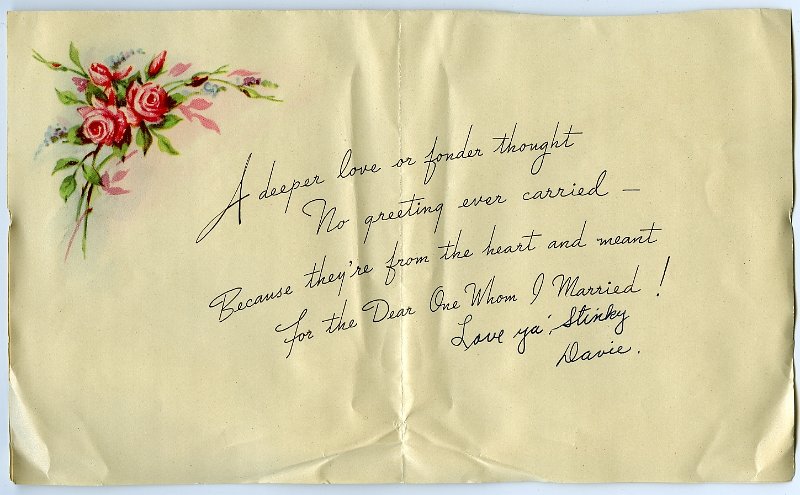 A deeper love or fonder thought
No greeting ever carried —
Because they're from the heart and meant
For the Dear One Whom I Married!
Love ya' Stinky
Davie.